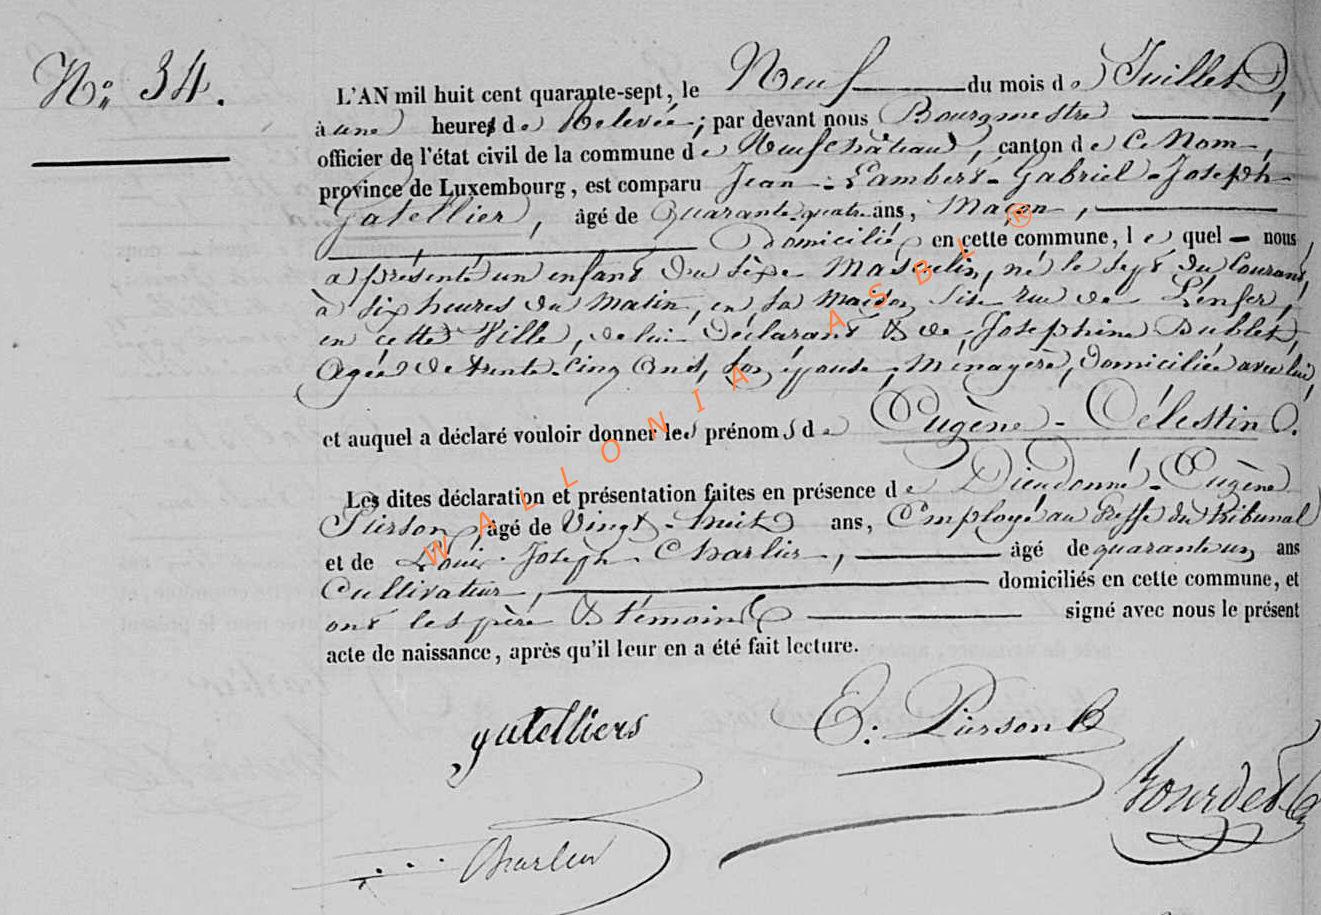 N° 34.
L'AN mil huit cent quarante-sept, le Neuf du mois de Juillet,
à une heure de Relevée; par devant nous Bourgmestre
officier de l'état civil de la commune de Neufchâteau, canton de ce Nom,
province de Luxembourg, est comparu Jean-Lambert-Gabriel-Joseph
Gatellier, âgé de Quarante-quatre ans, Maçon,
Domicilié en cette commune, lequel nous
a présenté un enfant du sèxe Masculin, né le sept du Courant,
à six heures du Matin, en sa Maison sise rue de L'enfer,
en cette Ville, de lui Déclarant & de Joséphine Dublet,
Agée de trente-cinq Ans, son épouse, Ménagère, domiciliée avec lui,
et auquel a déclaré vouloir donner les prénoms de Eugène-Célestin.
Les dites déclaration et présentation faites en présence de Dieudonné-Eugène
Pierson, âgé de Vingt-huit ans, Employé au Greffe du Tribunal
et de Louis-Joseph Charlier, âgé de quarante un ans
Cultivateur, domiciliés en cette commune, et
ont les père & témoins signé avec nous le présent
acte de naissance, après qu'il leur en a été fait lecture.
gatelliers
E: Pierson
Bourdet
Charlier
WALLONIA ASBL ®